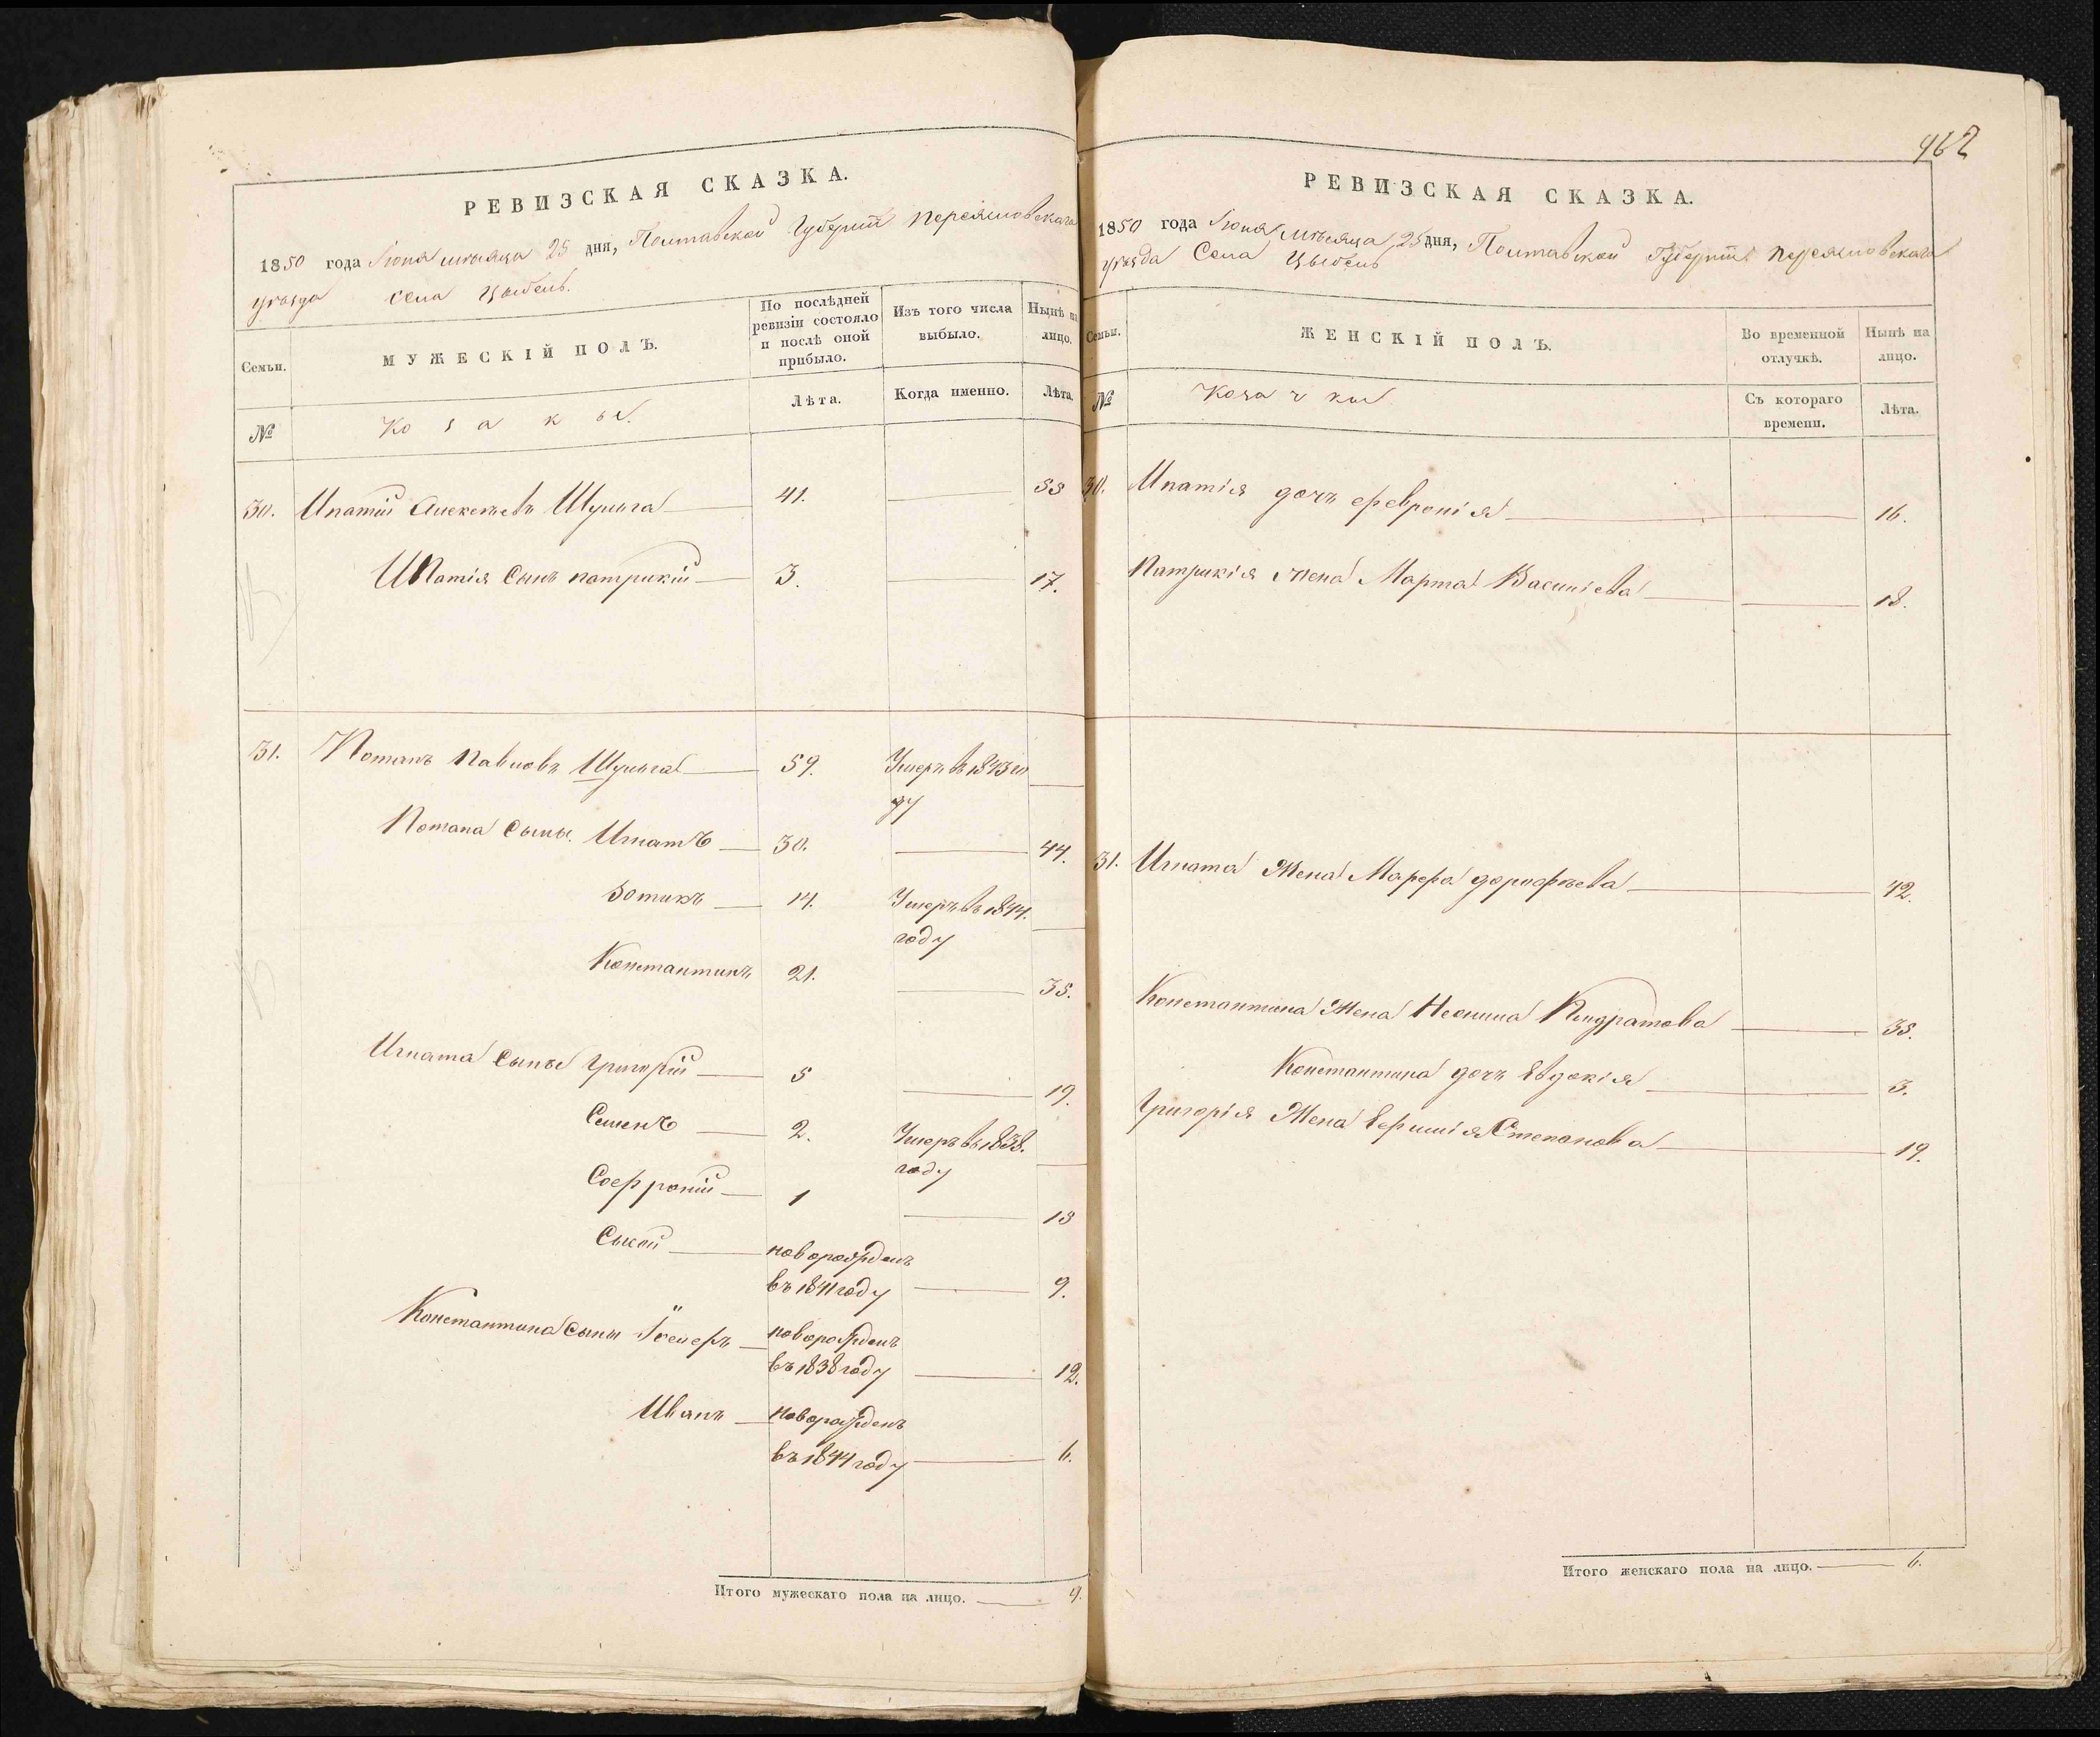 РЕВИЗСКАЯ СКАЗКА.
1850 года Іюня мѣсяца 25 дня, Полтавской Губерніи Переясловскаго
уѣзда Села Цыбель.
Семьи. МУЖЕСКІЙ ПОЛЪ. По послѣдней ревизіи состояло и послѣ оной прибыло. Изъ того числа выбыло. Нынѣ на лицо.
№ Козакы Лѣта. Когда именно. Лѣта.
30. Ипатій Алексѣевъ Шульга 41. 55
Ипатія Сынъ патрикій 3. 17.
31. Потапъ Павловъ Шульга 59. Умеръ въ 1843 го
ду
Потапа Сыны Игнатъ 30. 44.
Зотикъ 14. Умеръ въ 1844.
году
Константинъ 21. 35.
Игната Сыны Григорій 5 19.
Семенъ 2. Умеръ въ 1838.
году
Софроній 1 15
Сысой новорожденъ
въ 1841 году 9.
Константина Сыны новорожденъ
въ 1838 году 12.
Иванъ новорожденъ
въ 1844 году 6.
Итого мужескаго пола на лицо. 9.
962
РЕВИЗСКАЯ СКАЗКА.
1850 года Іюня мѣсяца 25 дня, Полтавской Губерніи Переясловскаго
уѣзда Села Цыбель
Семьи. ЖЕНСКІЙ ПОЛЪ. Во временной отлучкѣ. Нынѣ на лицо.
№ Козачкы Съ котораго времени. Лѣта.
30. Ипатія дочъ февронія 16.
Патрикія жена Марта Василіева 18.
31. Игната Жена Марфа дорофѣева 42.
Константина Жена Кондратова 35.
Константина дочъ Евдокія 3.
Григорія Жена Степанова 19.
Итого женскаго пола на лицо. 6.